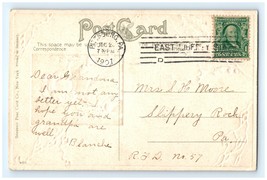 Post Card
This space may be
Correspondence
PITTSBURG, PA.
1907
EAST LIBERTY
Dear Grandma
I am not any
better yet. I
hope you and
grandpa are
well
Blanche
Mrs S. H. Moore
Slippery Rock,
Pa.
R.F.D. No. 57